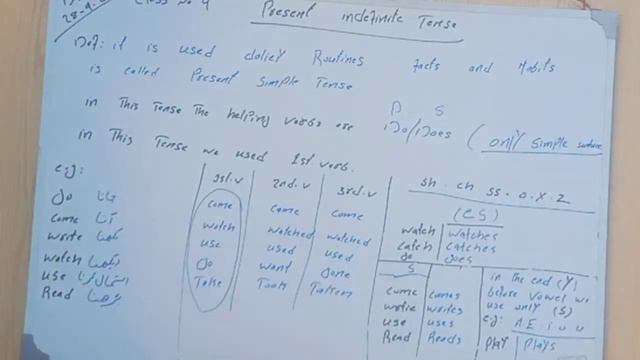 28-9-
Class No 4
Present indefinite Tense
Def: it is used daliey Routines facts and Habits
is called Present Simple Tense
P S
in This Tense The helping verbs are Do/Does (only simple
in This Tense we used 1st verb.
e.g:
go جانا
come آنا
write لکھنا
watch دیکھنا
use استعمال کرنا
Read پڑھنا
1st.v 2nd.v 3rd.v
come came come
watch watched watched
use used used
go want gone
Take Took Taken
sh. ch. ss. o. x. z
(es)
watch watches
catch catches
do does
s
come comes
write writes
use uses
Read Reads
in the end (y)
before vowel we
use only (s)
e.g: A E i o u
Play Plays